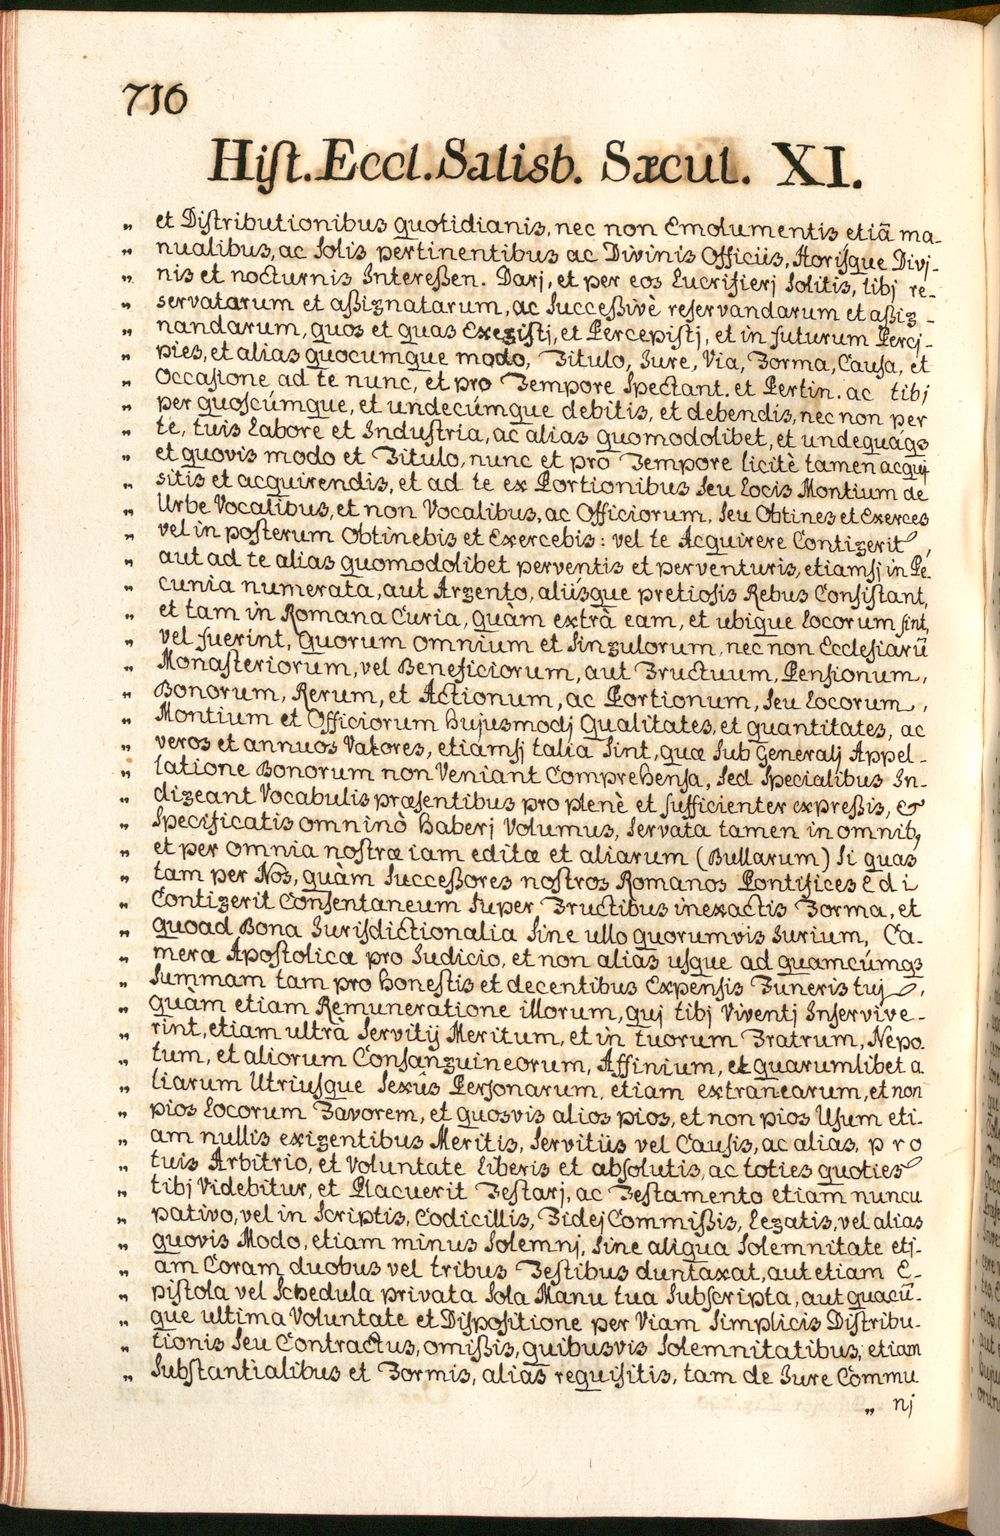 716
Hist. Eccl. Salisb. Sæcul. XI.
„ et Distributionibus quotidianis, nec non Emolumentis etiã ma-
„ nualibus, ac Solis pertinentibus ac Divinis Officiis, Horisque Divj-
„ nis et nocturnis Interessen. Darj, et per eos Lucrifierj Solitis, tibj re-
„ servatarum et assignatarum, ac Successivè reservandarum et assig-
„ nandarum, quos et quas Exegistj, et Percepistj, et in futurum Percj-
„ pies, et alias quocumque modo, Titulo, Jure, Via, Forma, Causa, et
„ Occasione ad te nunc, et pro Tempore Spectant. et Pertin. ac tibj
„ per quoscúmque, et undecúmque debitis, et debendis, nec non per
„ te, tuis Labore et Industria, ac alias quomodolibet, et undequáqs
„ et quovis modo et Titulo, nunc et pro Tempore licitè tamen acquj
„ sitis et acquirendis, et ad te ex Portionibus Seu Locis Montium de
„ Urbe Vocalibus, et non Vocalibus, ac Officiorum, Seu Obtines et Exerces
„ vel in posterum Obtinebis et Exercebis: vel te Acquirere Contigerit,
„ aut ad te alias quomodolibet perventis et perventuris, etiamsj in Pe-
„ cunia numerata, aut Argento, aliisque pretiosis Rebus Consistant,
„ et tam in Romana Curia, quàm extrà eam, et ubique Locorum sint,
„ vel fuerint, Quorum omnium et Singulorum, nec non Ecclesiarũ
„ Monasteriorum, vel Beneficiorum, aut Fructuum, Pensionum,
„ Bonorum, Rerum, et Actionum, ac Portionum, Seu Locorum,
„ Montium et Officiorum hujusmodj Qualitates, et quantitates, ac
„ veros et annuos Valores, etiamsj talia Sint, quæ Sub Generalj Appel-
„ latione Bonorum non Veniant Comprehensa, Sed Specialibus In-
„ digeant Vocabulis præsentibus pro plenè et sufficienter expressis, &
„ Specificatis omninò haberj Volumus, Servata tamen in omnibꝫ
„ et per omnia nostræ iam editæ et aliarum (Bullarum) Si quas
„ tam per Nos, quàm Successores nostros Romanos Pontifices Edi
„ Contigerit Consentaneum Super Fructibus inexactis Forma, et
„ quoad Bona Jurisdictionalia Sine ullo quorumvis Jurium, Ca-
„ meræ Apostolicæ pro Judicio, et non aliàs usque ad quamcúmqs
„ Summam tam pro honestis et decentibus Expensis Funeris tuj,
„ quàm etiam Remuneratione illorum, quj tibj Viventj Inservive-
„ rint, etiam ultrà Servitij Meritum, et in tuorum Fratrum, Nepo
„ tum, et aliorum Consanguineorum, Affinium, et quarumlibet a
„ liarum Utriusque Sexûs Personarum, etiam extranearum, et non
„ pios Locorum Favorem, et quosvis alios pios, et non pios Usum eti-
„ am nullis exigentibus Meritis, Servitiis vel Causis, ac alias, pro
„ tuis Arbitrio, et Voluntate Liberis et absolutis, ac toties quoties
„ tibj Videbitur, et Placuerit Testarj, ac Testamento etiam nuncu
„ pativo, vel in Scriptis, Codicillis, Fidej Commissis, Legatis, vel alias
„ quovis Modo, etiam minus Solemnj, Sine aliqua Solemnitate etj-
„ am Coram duobus vel tribus Testibus duntaxat, aut etiam E-
„ pistola vel Schedula privata Sola Manu tua Subscripta, aut quacũ-
„ que ultima Voluntate et Dispositione per Viam Simplicis Distribu-
„ tionis Seu Contractus, omissis, quibusvis Solemnitatibus, etiam
„ Substantialibus et Formis, aliàs requisitis, tam de Jure Commu
„ nj